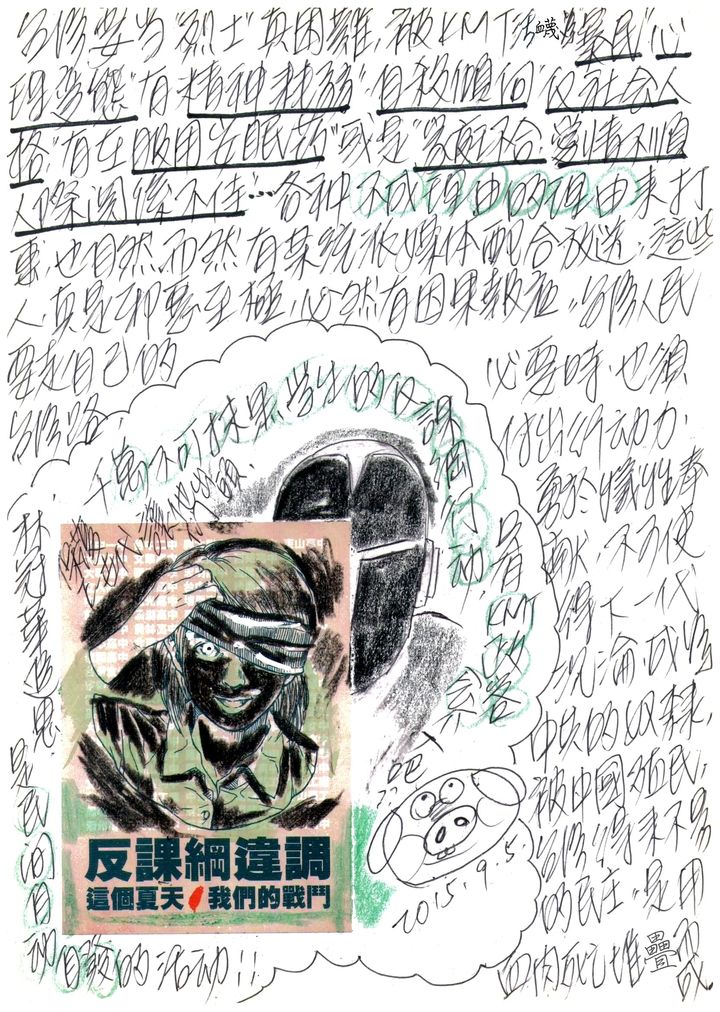 台灣要当"烈士"真困難,被KMT污衊"暴民""心
理变態""有精神耗弱""自殺傾向""仅社会人
格""有在服用安眠药"或是"家庭不合""学情不順
人際関係不佳"…各种不成理由的理由來打
壓,也自然而然有某統派媒体配合放送,這些
人真是邪惡至極,必然有因果報應。台灣人民
要走自己的
台灣路,
千萬不可抹黑学生的反課綱行动,
只有KMT政客
系
吧
必要時,也須
付出行动力,
勇於犧牲奉
献,不可使
得下一代
沉淪,成為
中共的奴隸,
被中國殖民,
台灣得來不易
的民主,是用
血肉死亡堆疊而
成
林冠華追思
是民间自动
自發的活动!!
反課綱違調
這個夏天 我們的戰鬥
2015.9.5.